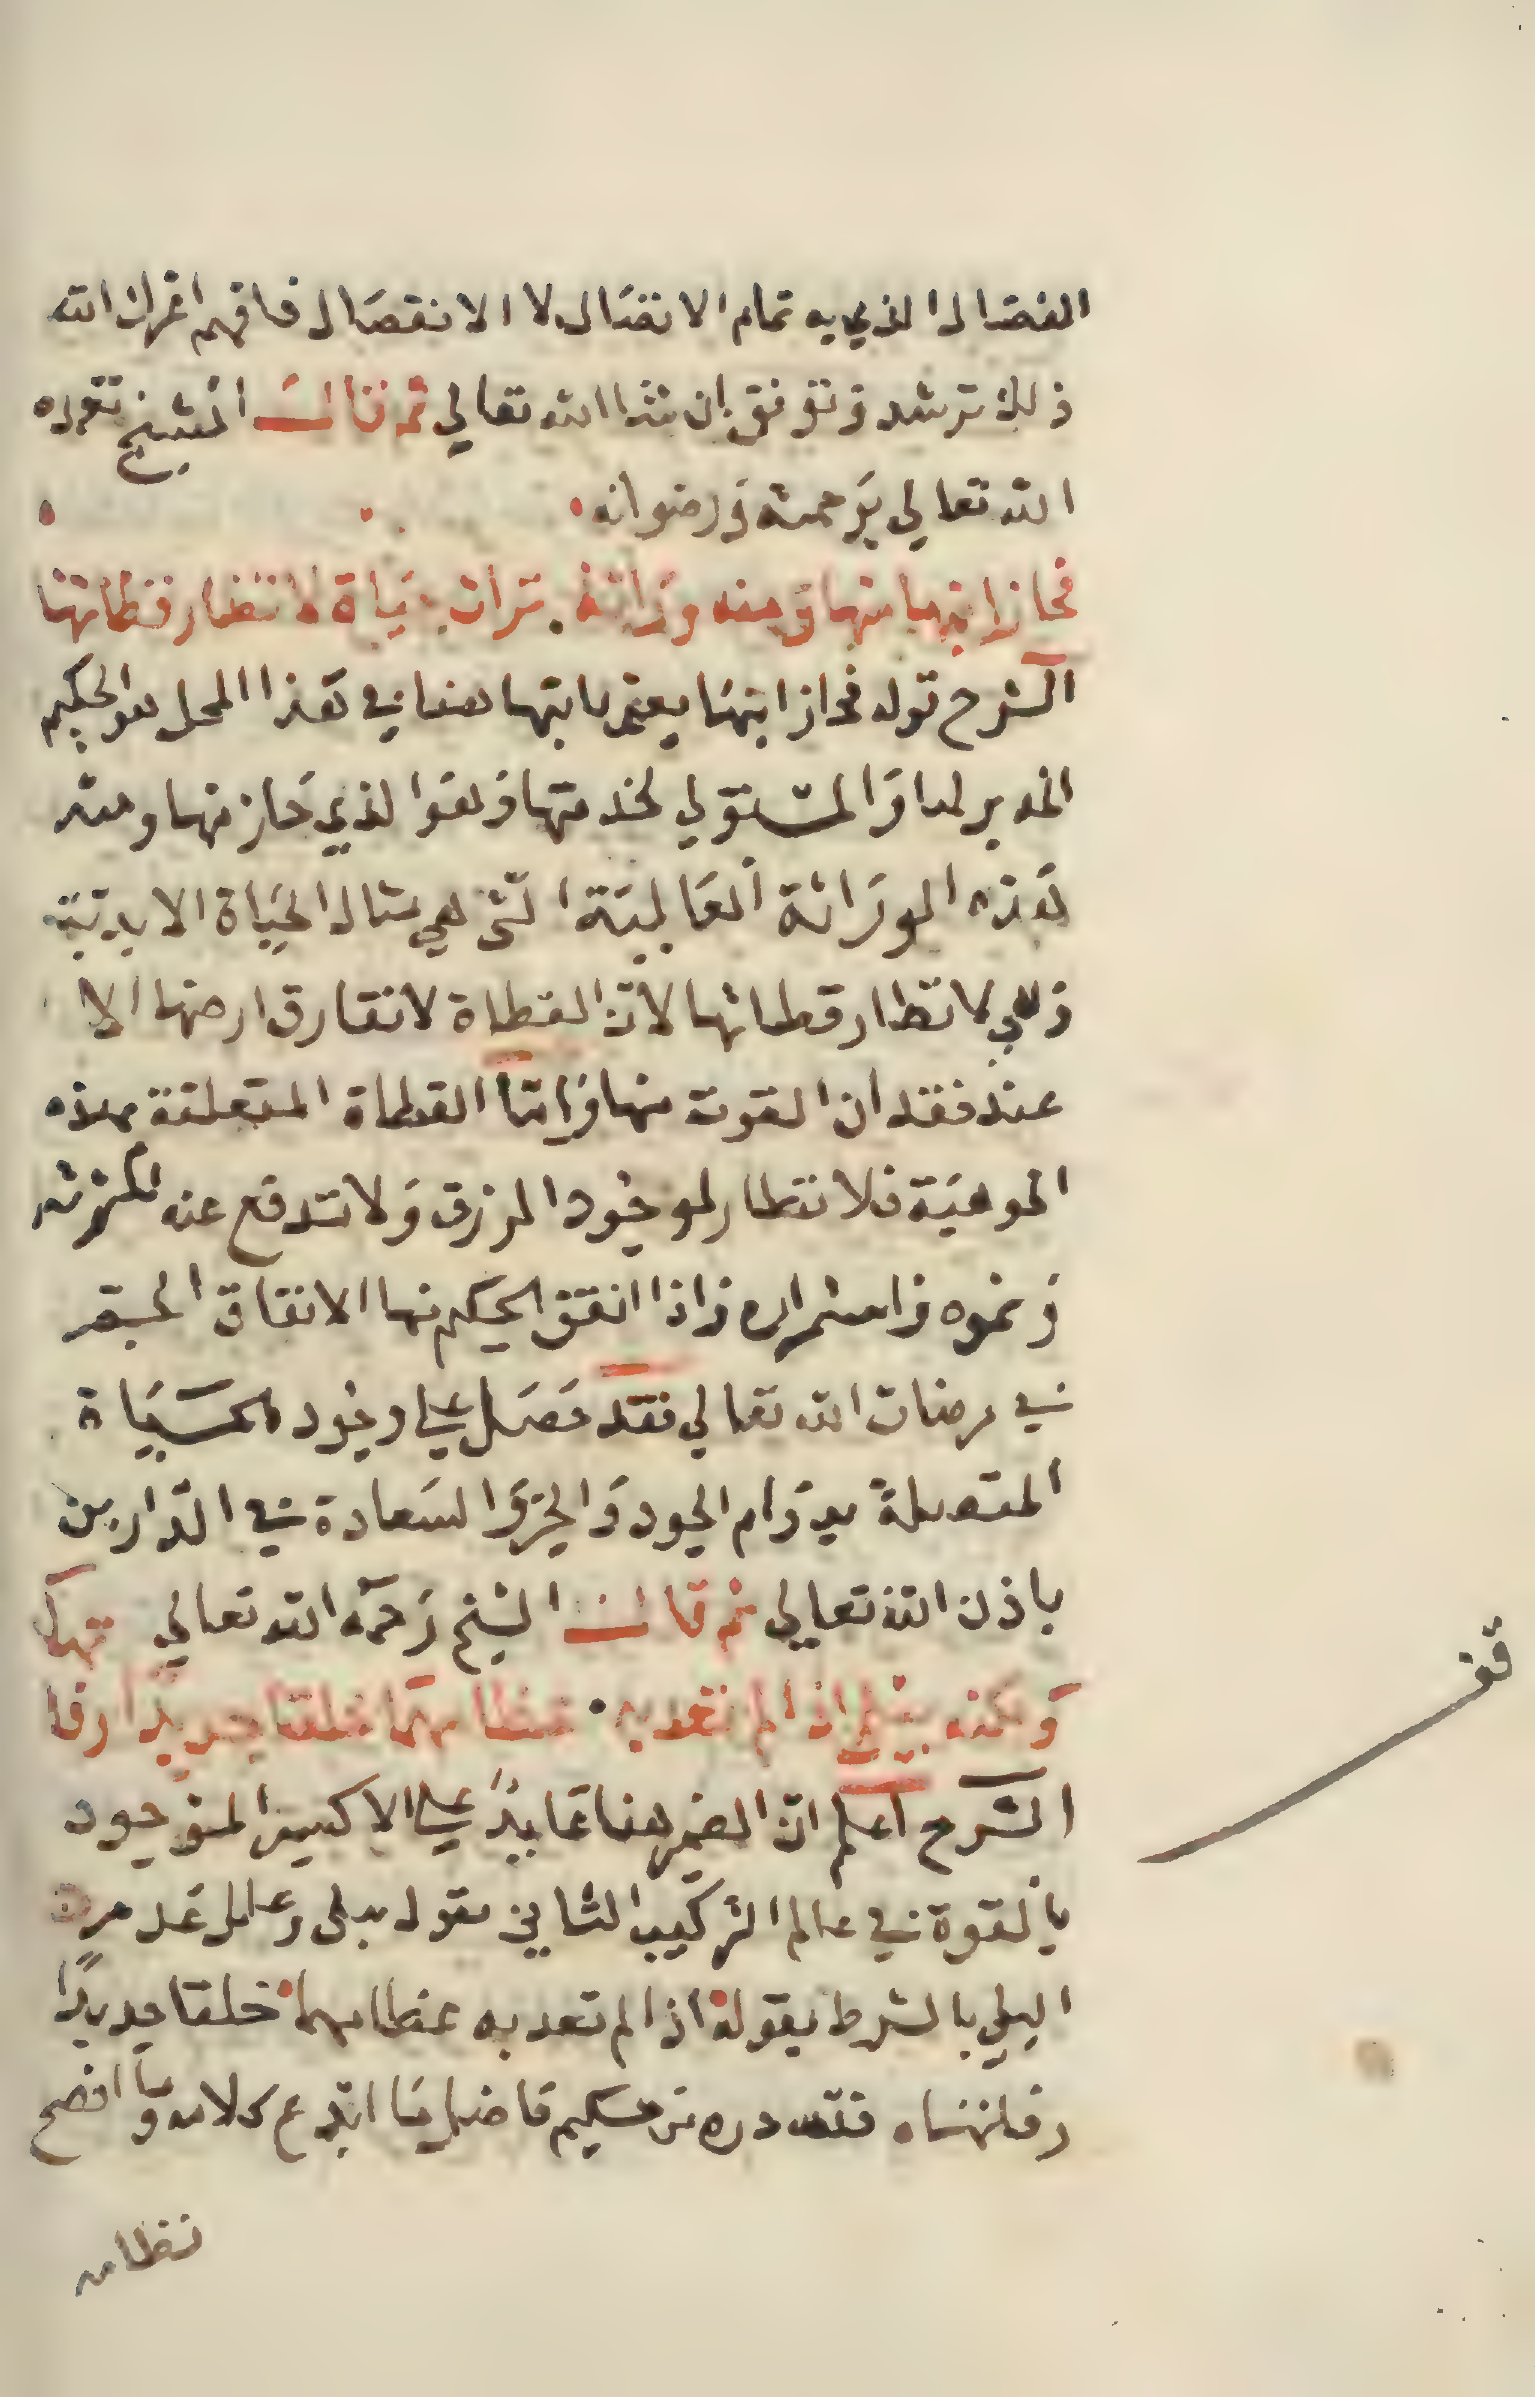 الفصال الذي به تمام الاتصال لا الانفصال فافهم اعزك الله
ذلك ترشد وتوفق ان شا الله تعالي ثم قال الشيخ تغمده
الله تعالي برحمته ورضوانه
فحاز ابنها منها ومنه وراثة تراث حياة لا تطار قطاتها
الشرح قوله فحاز ابنها يعني بابنها هنا في هذا المحل هو الحكيم
المدبر لها والمستولي لخدمتها وهو الذي حاز منها ومنه
هذه الوراثة العالية التي هي مثال الحياة الابدية
وهي لا تطار قطاتها لان القطاة لا تفارق ارضها الا
عند فقدان القوت منها واما القطاة المتعلقة بهذه
الموهبة فلا تطار لوجود الرزق ولا تدفع عنه لكثرته
ونموه واستمراره واذا انفق الحكيم منها الانفاق
في مرضات الله تعالي فقد حصل علي وجود الحياة
المتصلة بدوام الجود والخير والسعادة في الدارين
باذن الله تعالي ثم قال الشيخ رحمه الله تعالي
ولكنه يبلي اذا لم تعد به عظامهما خلقا جديدا رفا
الشرح اعلم ان الضمير هنا عايد علي الاكسير الموجود
بالقوة في عالم التركيب الثاني بقوله يبلي
البلي بالشرط بقوله اذا لم تعد به عظامهما خلقا جديدا
رفاتها فلله دره من حكيم فاضل ما ابدع كلامه وما افصح
نظامه
قف